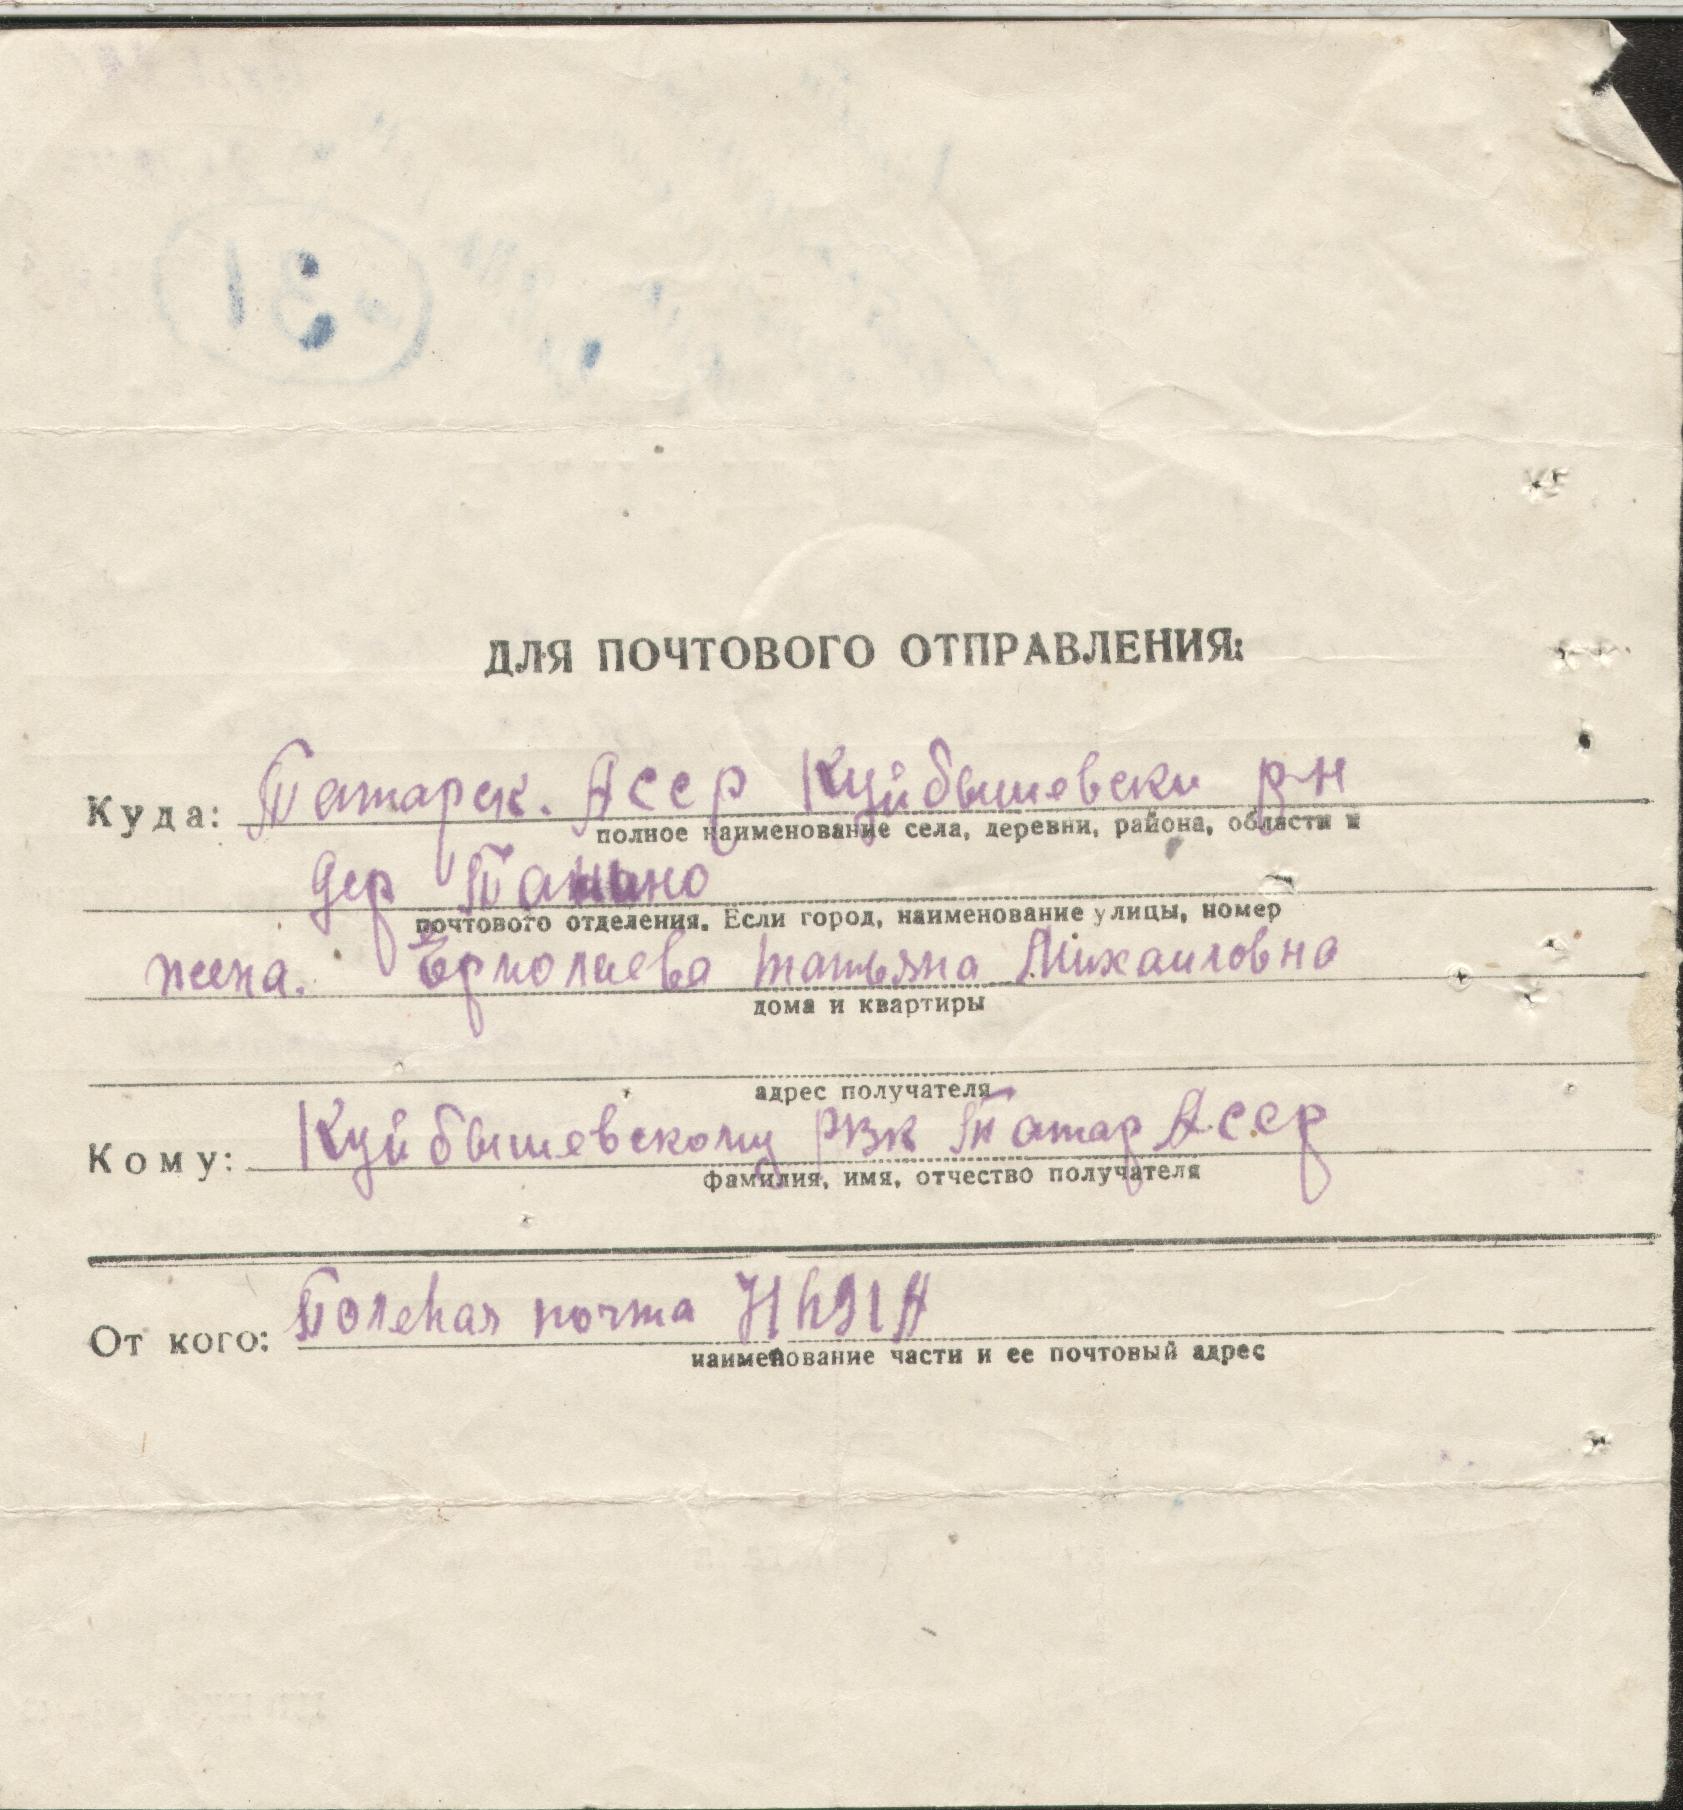 31
ДЛЯ ПОЧТОВОГО ОТПРАВЛЕНИЯ:
Куда: Татарск. Асср Куйбышевски р-н
полное наименование села, деревни, района, области и
дер Танино
почтового отделения. Если город, наименование улицы, номер
жена. Ермолаева Татьяна Михаиловна
дома и квартиры
адрес получателя
Кому: Куйбышевскому РВК Татар Асср
фамилия, имя, отчество получателя
От кого: Полевая почта
наименование части и ее почтовый адрес